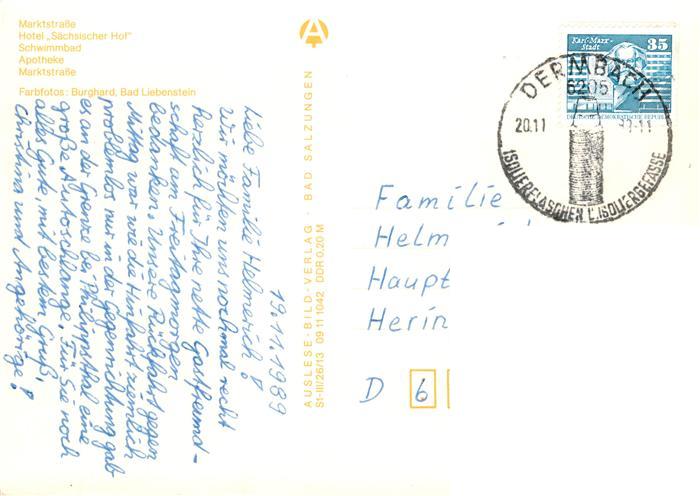 Marktstraße
Hotel „Sächsischer Hof"
Schwimmbad
Apotheke
Marktstraße
Farbfotos: Burghard, Bad Liebenstein
19.11.1989
Liebe Familie Helmerich!
Wir möchten uns nochmal recht
herzlich für Ihre nette Gastfreund-
schaft am Freitagmorgen
bedanken. Unsere Rückfahrt gegen
Mittag war wie die Hinfahrt ziemlich
problemlos nur in der Gegenrichtung gab
es an der Grenze bei Philippsthal eine
große Autoschlange. Für Sie noch
alles Gute, mit bestem Gruß,
Christina und Angehörige!
AUSLESE-BILD-VERLAG · BAD SALZUNGEN
St-III/26/13 09 11 1042 DDR 0,20 M
Karl-Marx-
Stadt
35
DEUTSCHE DEMOKRATISCHE REPUBLIK
DERMBACH
6205
20.11
-11
ISOLIERFLASCHEN U. ISOLIERGEFÄSSE
Familie
Helm
Haupt
Herin
D 6